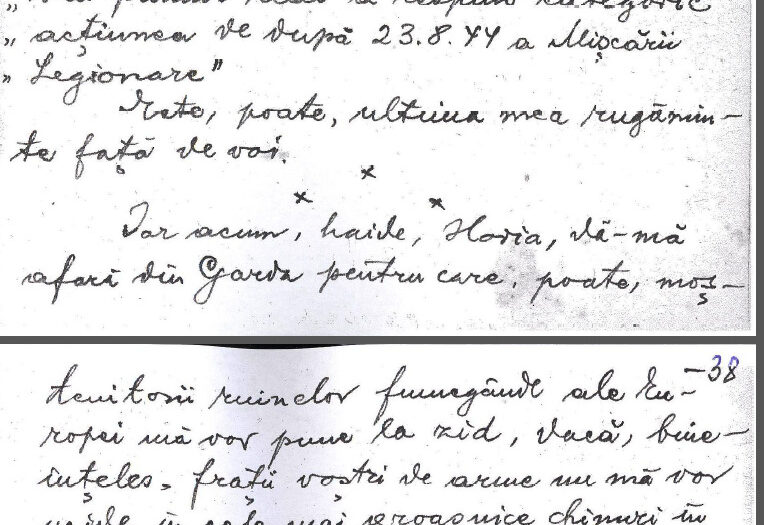 „ acțiunea de după 23.8.44 a Mișcării
„ Legionare”
Este, poate, ultima mea rugămin-
te față de voi.
x x x
Iar acum, haide, Horia, dă-mă
afară din Garda pentru care, poate, moș-
-38
tenitorii ruinelor fumegânde ale Eu-
ropei mă vor pune la zid, dacă, bine-
înțeles, frații voștri de arme nu mă vor